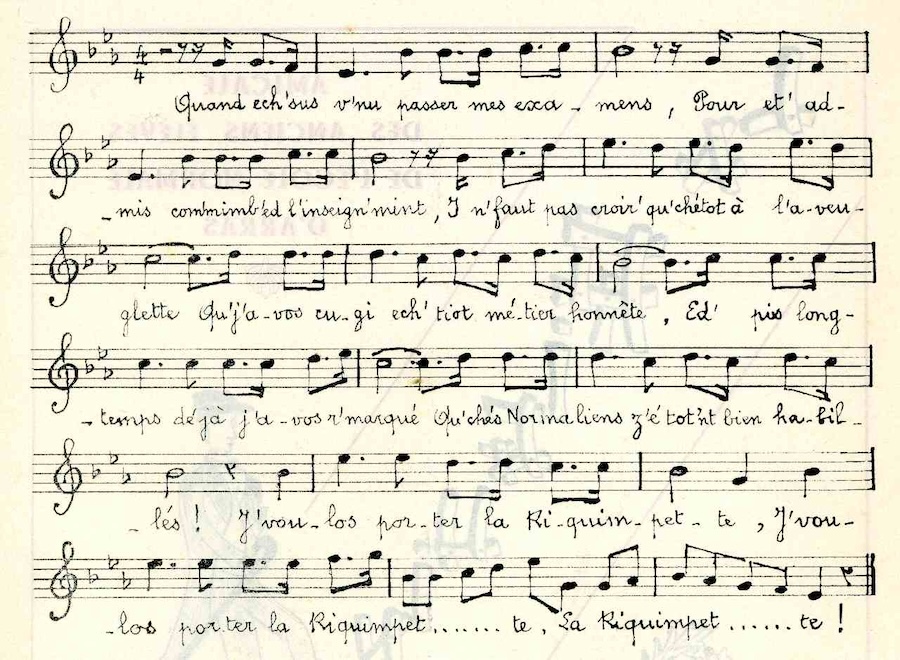 4
4
Quand ech'sus v'nu passer mes exa - mens , Pour et' ad-
- mis comm'imb'ed l'inseign'mint, I n'faut pas croir' qu'chétot à l'a-veu-
glette Qu'j'a-vos cu-gi ech' tiot mé-tier honnête , Ed' pis long-
- temps déjà j'a-vos r'marqué Qu'chés Normaliens z'é tot'nt bien ha-bil-
- lés ! J'vou-los por-ter la Ri-quim-pet- - te , J'vou-
-los por.ter la Riquimpet....... te, La Riquimpet ...... te !
AMICALE
DES ANCIENS ELEVES
DE L'ECOLE NORMALE
D'ARRAS